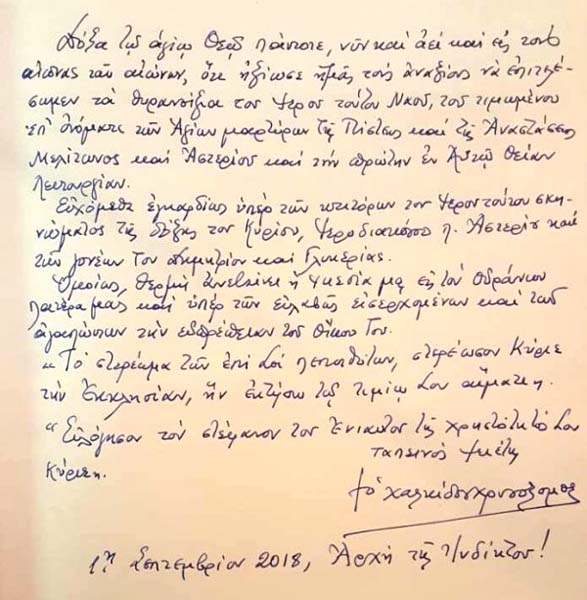 Δόξα τῷ ἁγίῳ Θεῷ πάντοτε, νῦν καί ἀεί καί εἰς τούς
αἰῶνας τῶν αἰώνων, ὅτι ἠξίωσε ἡμᾶς τούς ἀναξίους νά ἐπιτελέ-
σωμεν τά θυρανοίξια τοῦ Ἱεροῦ τούτου Ναοῦ, τοῦ τιμωμένου
ἐπ' ὀνόματι τῶν Ἁγίων μαρτύρων τῆς Πίστεως καί τῆς Ἀναστάσεως
Μελίτωνος καί Ἀστερίου καί τήν πρώτην ἐν Αὐτῷ Θείαν
Λειτουργίαν.
Εὐχόμεθα ἐγκαρδίως ὑπέρ τῶν κτιτόρων τοῦ Ἱεροῦ τούτου σκη-
νώματος τῆς δόξης τοῦ Κυρίου, Ἱεροδιακόνου π. Ἀστερίου καί
τῶν γονέων Του Δημητρίου καί Γλυκερίας.
Ὁμοίως, θερμή ἀνεβαίνει ἡ ἱκεσία μας εἰς τόν Οὐράνιον
Πατέρα μας καί ὑπέρ τῶν εὐλαβῶς εἰσερχομένων καί τῶν
ἀγαπώντων τήν εὐπρέπειαν τοῦ Οἴκου Του.
"Τό στερέωμα τῶν ἐπί Σοί πεποιθότων, στερέωσον Κύριε
τήν Ἐκκλησίαν, ἥν ἐκτήσω τῷ τιμίῳ Σου αἵματι".
"Εὐλόγησον τόν στέφανον τοῦ Ἐνιαυτοῦ τῆς χρηστότητός Σου
Κύριε".
ταπεινός ἱκέτης
† ὁ Χαλκίδος Χρυσόστομος
1η Σεπτεμβρίου 2018, Ἀρχή τῆς Ἰνδίκτου!